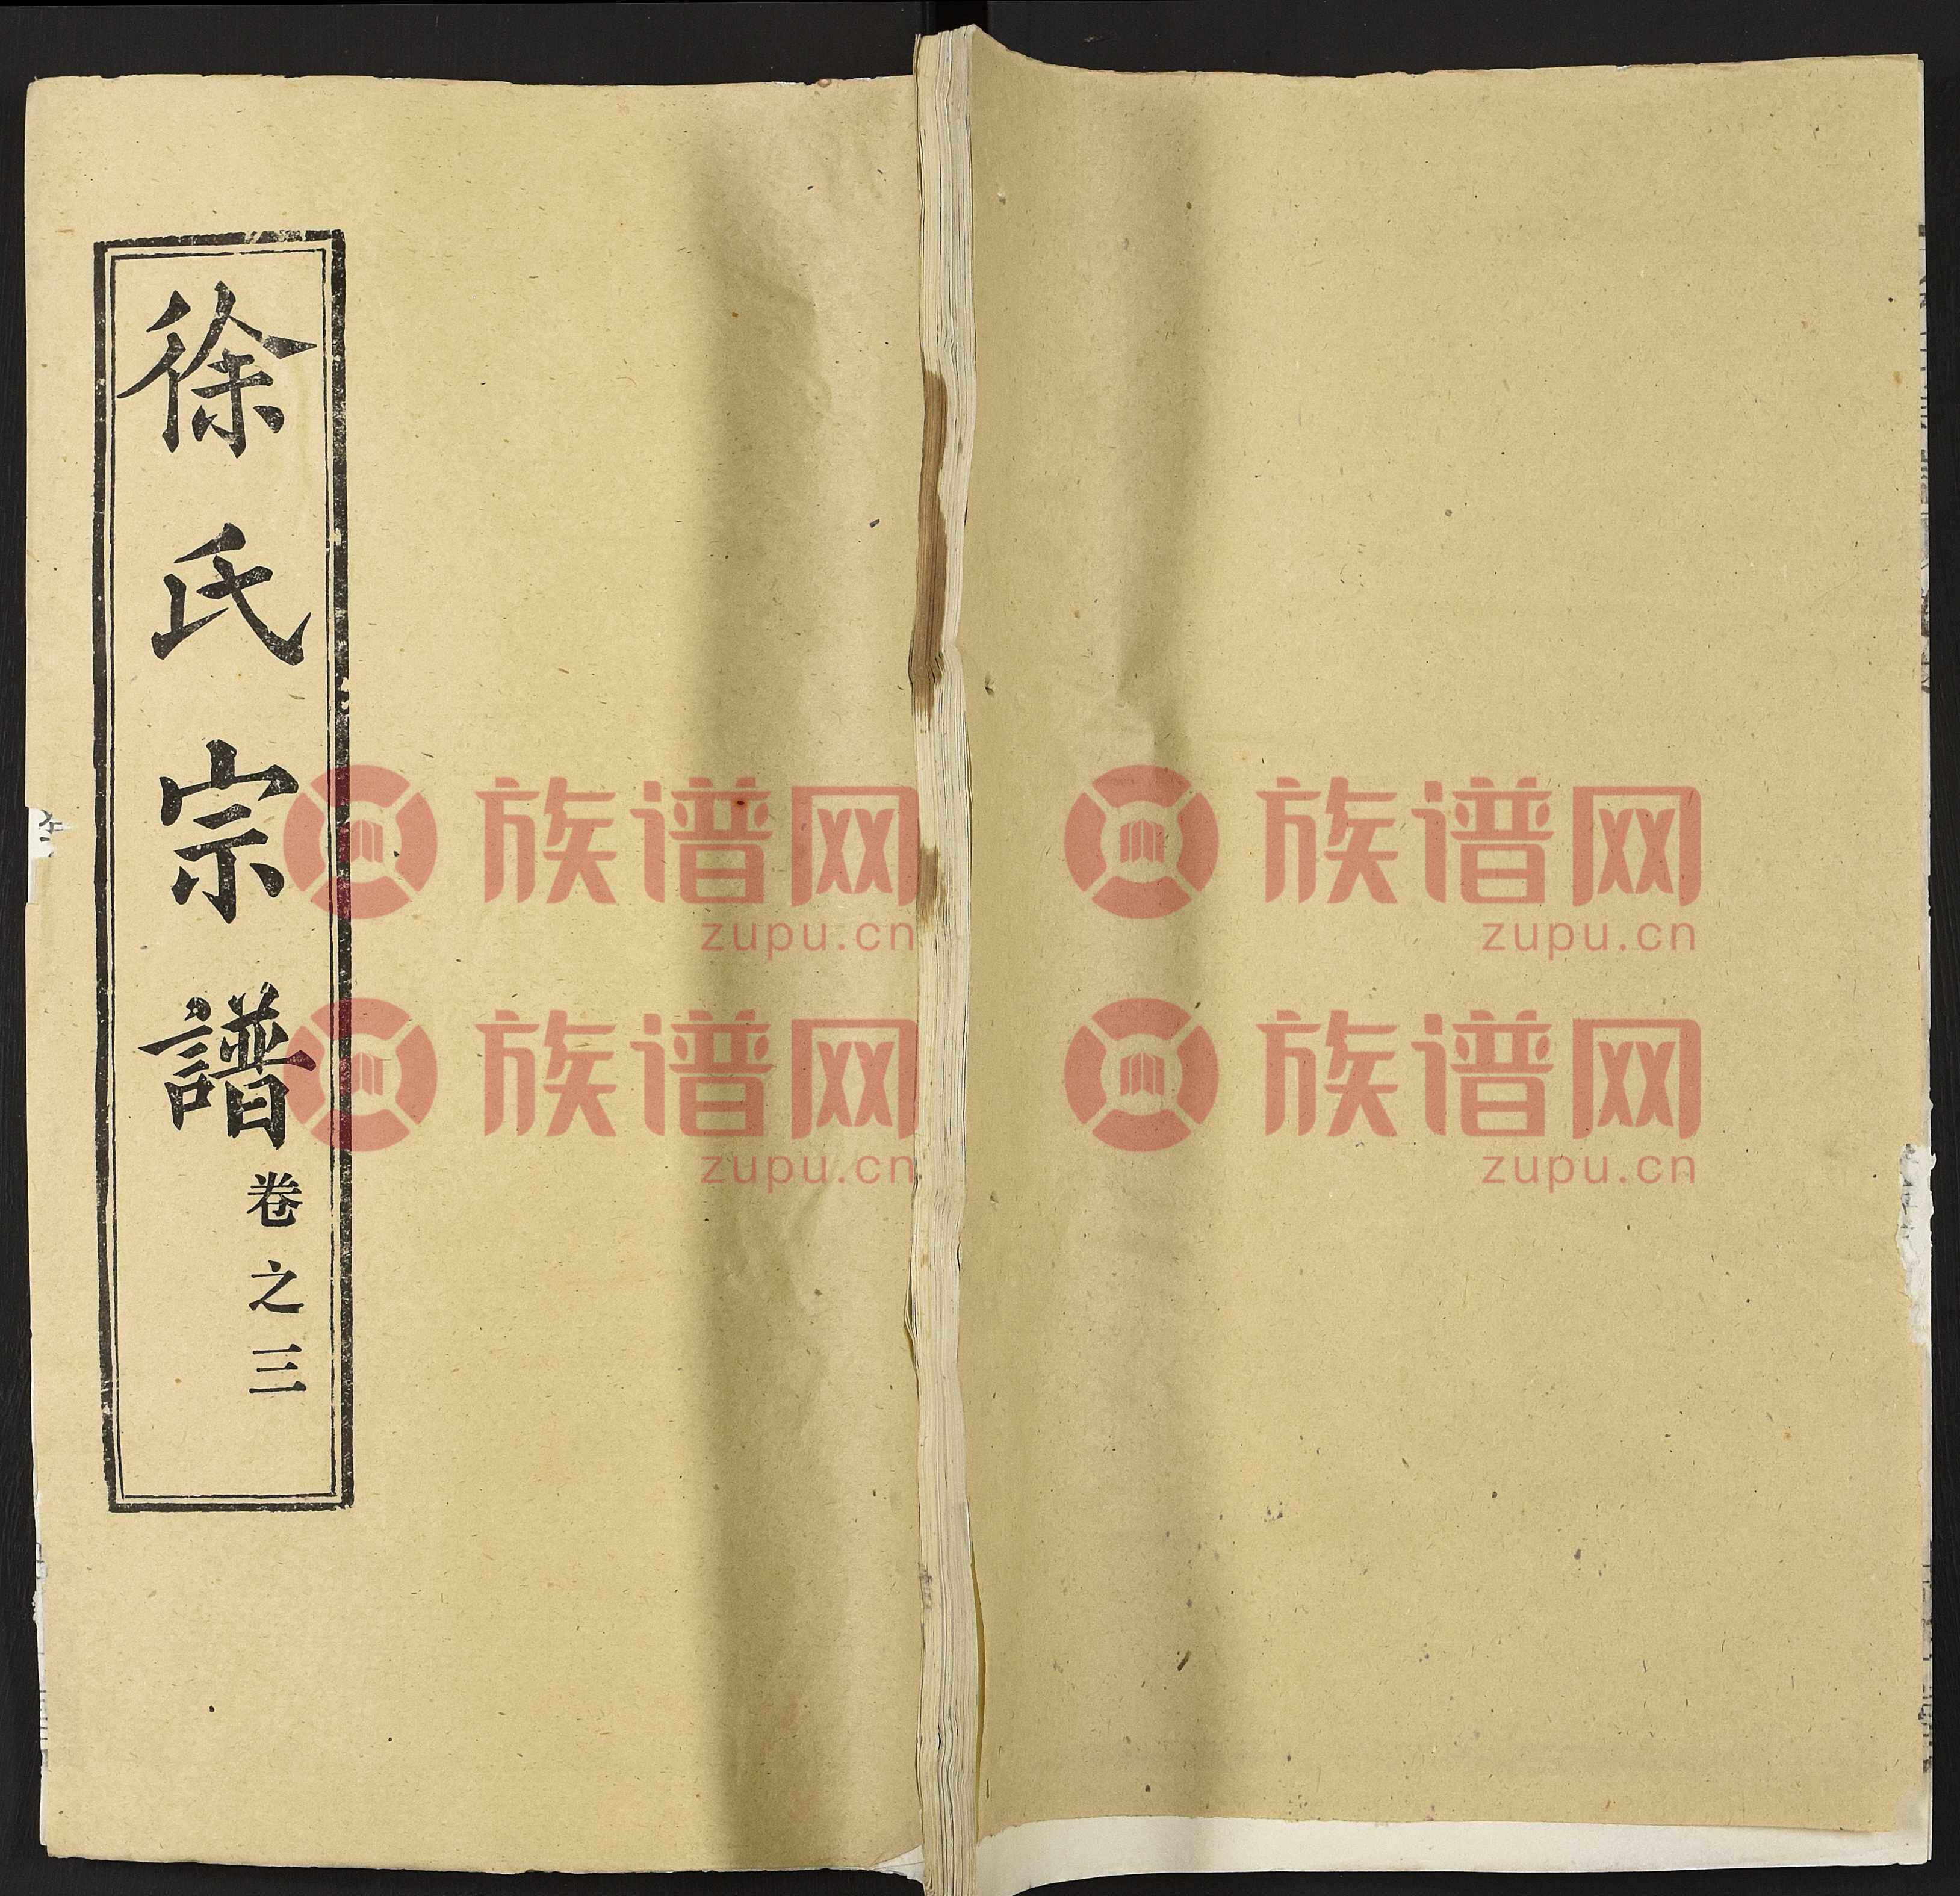 徐氏宗譜
卷之三
族谱网
zupu.cn
族谱网
zupu.cn
族谱网
zupu.cn
族谱网
zupu.cn